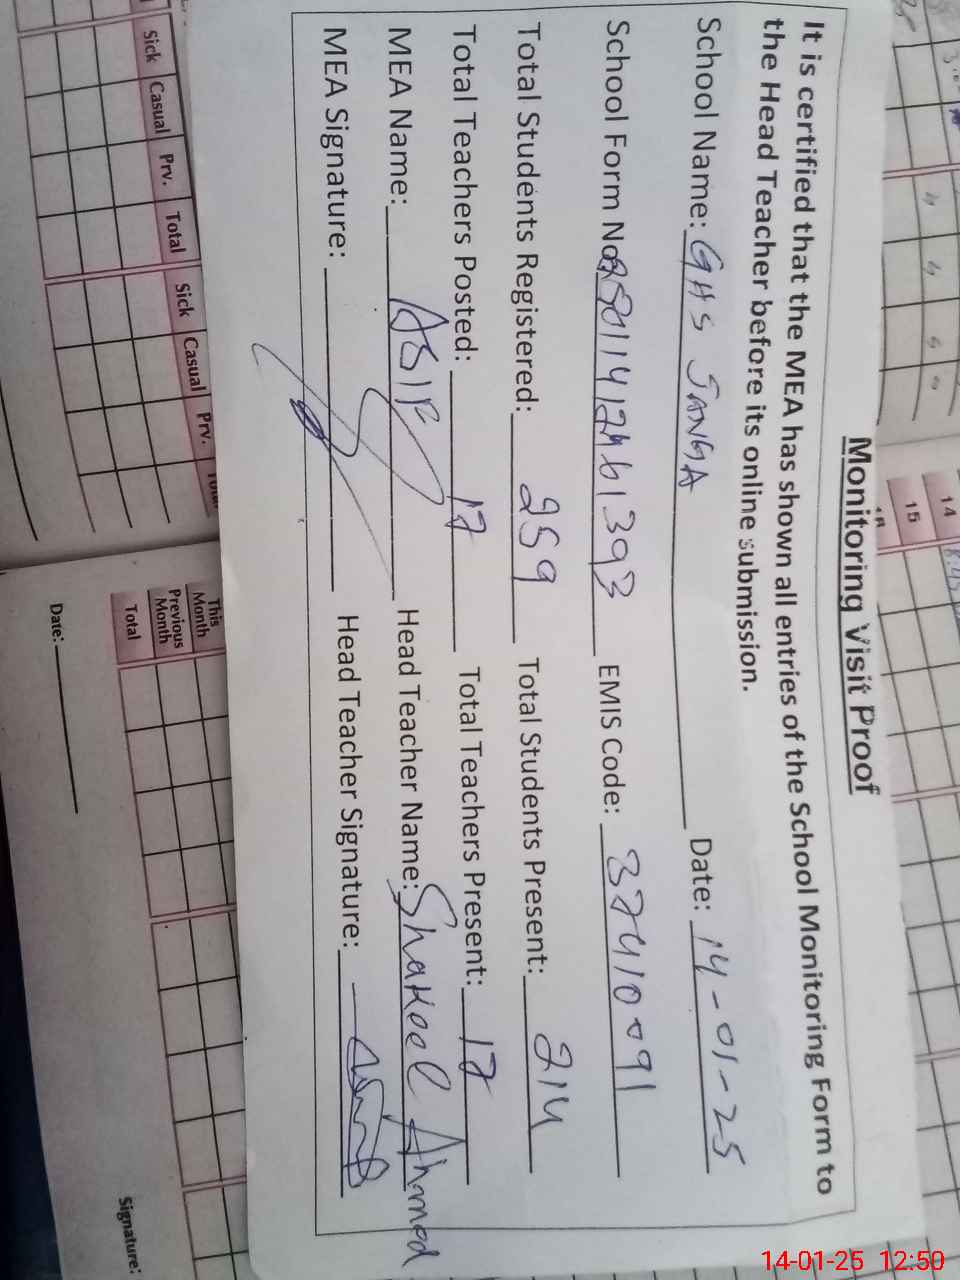 Monitoring Visit Proof
It is certified that the MEA has shown all entries of the School Monitoring Form to
the Head Teacher before its online submission.
School Name: GHS JANGA Date: 14-01-25
School Form No: EMIS Code: 37410091
Total Students Registered: 259 Total Students Present: 214
Total Teachers Posted: 17 Total Teachers Present: 17
MEA Name: ASIF Head Teacher Name: Shakeel Ahmed
MEA Signature: Head Teacher Signature:
Sick Casual Prv. Total Sick Casual Prv.
This Month
Previous Month
Total
Date:
Signature:
14
15
14-01-25 12:50